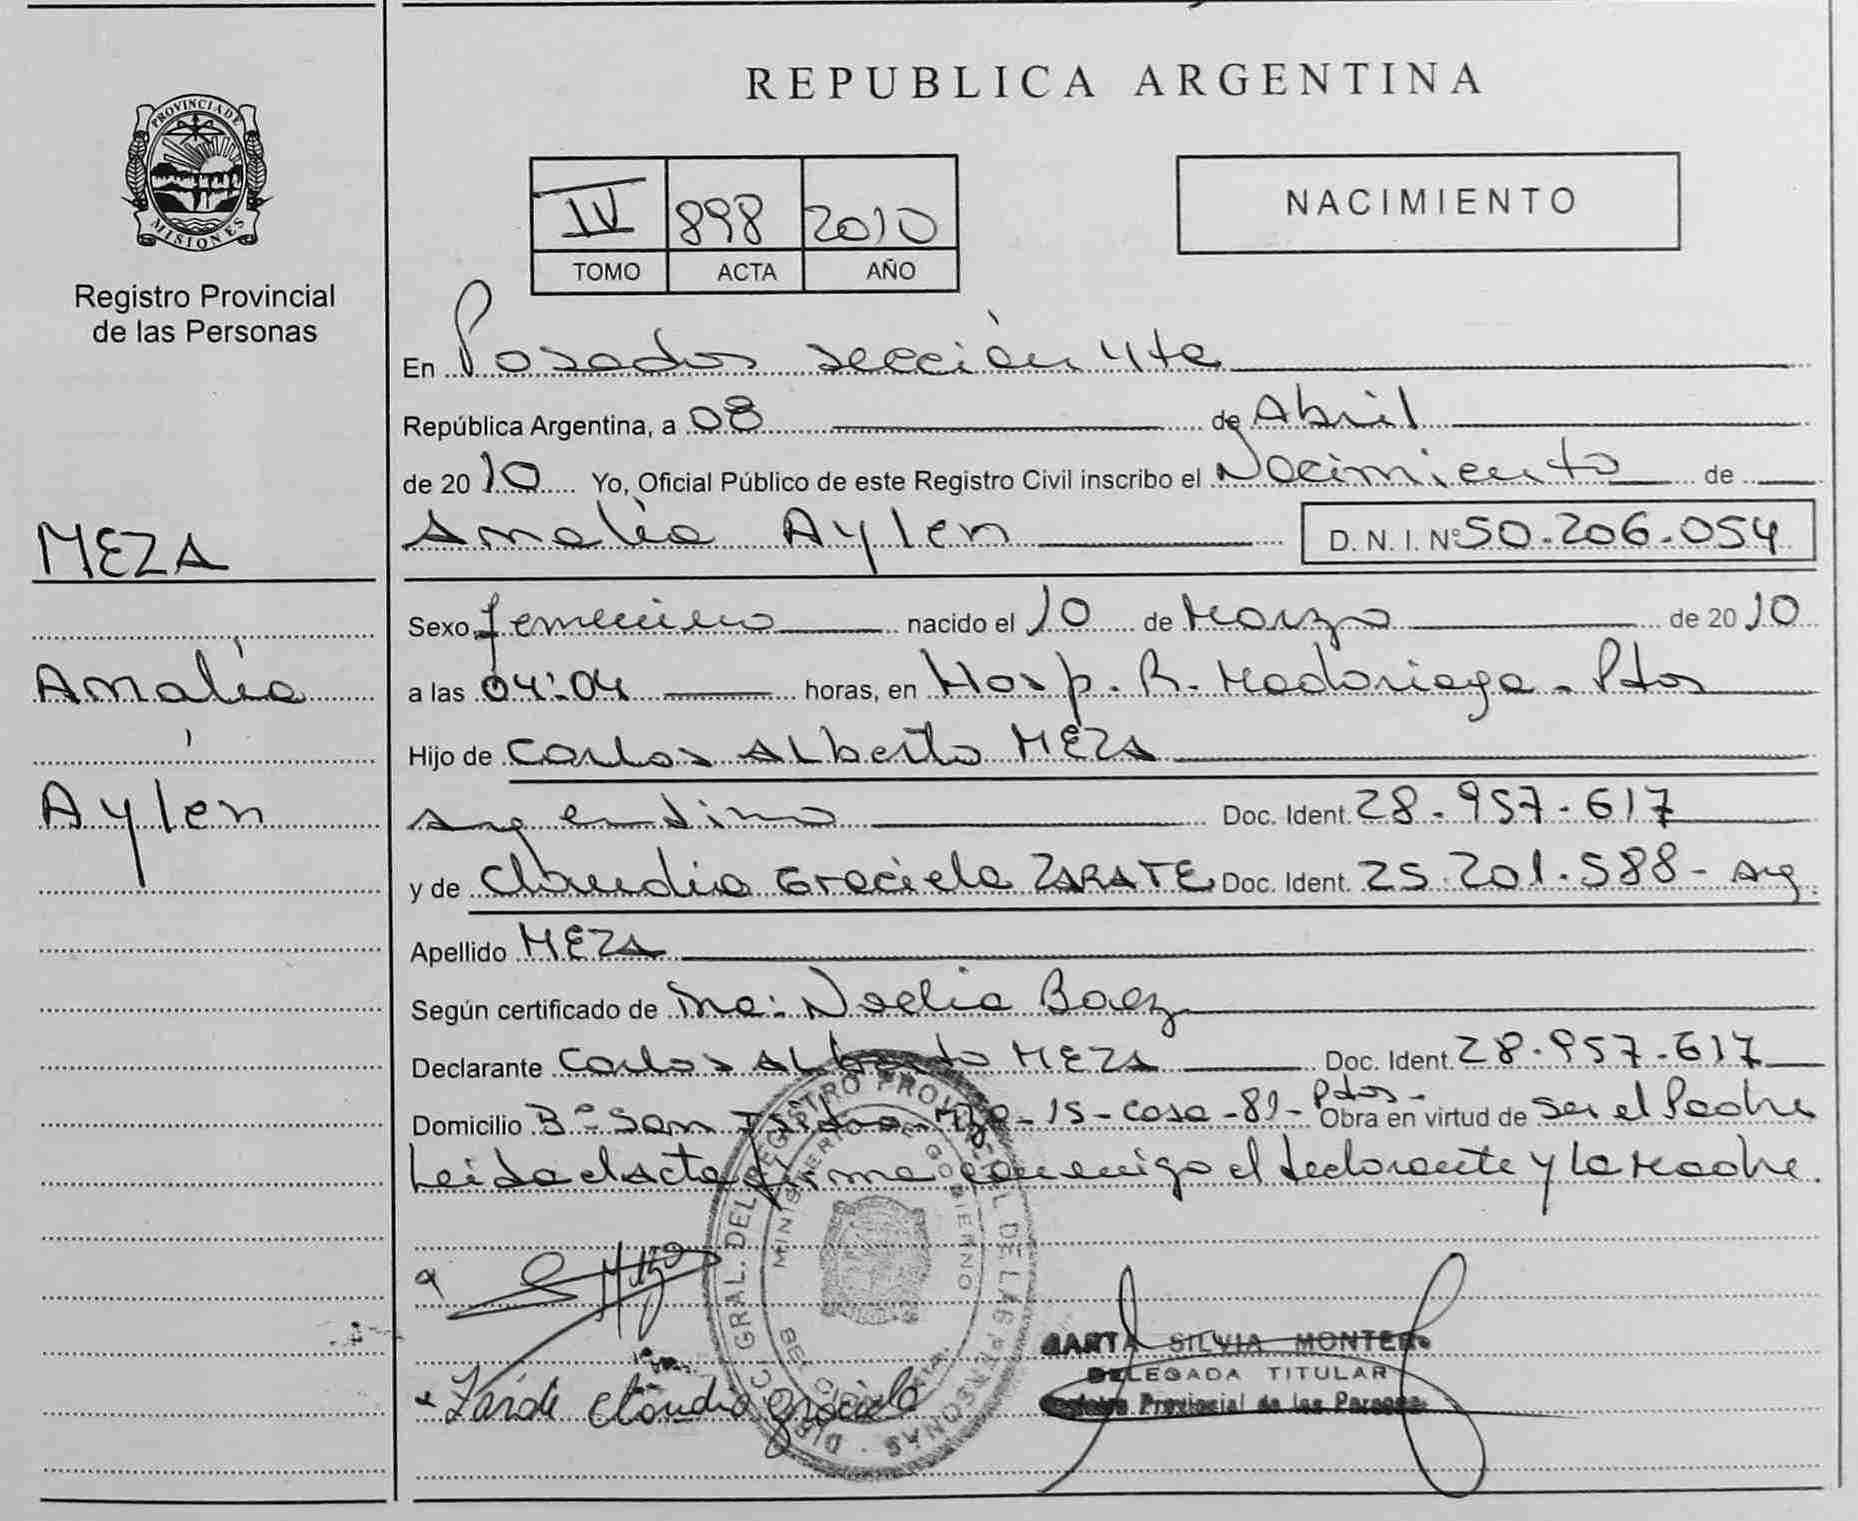 PROVINCIA DE
MISIONES
Registro Provincial
de las Personas
MEZA
Amalia
Aylen
REPUBLICA ARGENTINA
IV 898 2010
TOMO ACTA AÑO
NACIMIENTO
En Posadas sección 4ta
República Argentina, a 08 de Abril
de 2010 Yo, Oficial Público de este Registro Civil inscribo el Nacimiento de
Amalia Aylen D. N. I. Nº 50.206.054
Sexo femenino nacido el 10 de Marzo de 2010
a las 04:04 horas, en Hosp. R. Madariaga - Pdas
Hijo de Carlos Alberto MEZA
argentino Doc. Ident. 28.957.617
y de Claudia Graciela ZARATE Doc. Ident. 25.201.588 - arg.
Apellido MEZA
Según certificado de Noelia Baez
Declarante Carlos Alberto MEZA Doc. Ident. 28.957.617
Domicilio Bº San Isidro - Mza - 15 - casa - 81 - Pdas - Obra en virtud de ser el Padre
Leida el Acta firma conmigo el declarante y la Madre.
DIRECC. GRAL. DEL REGISTRO PROVINCIAL DE LAS PERSONAS
MINISTERIO DE GOBIERNO
SILVIA
DELEGADA TITULAR
Registro Provincial de las Personas
Zarate Claudia Graciela